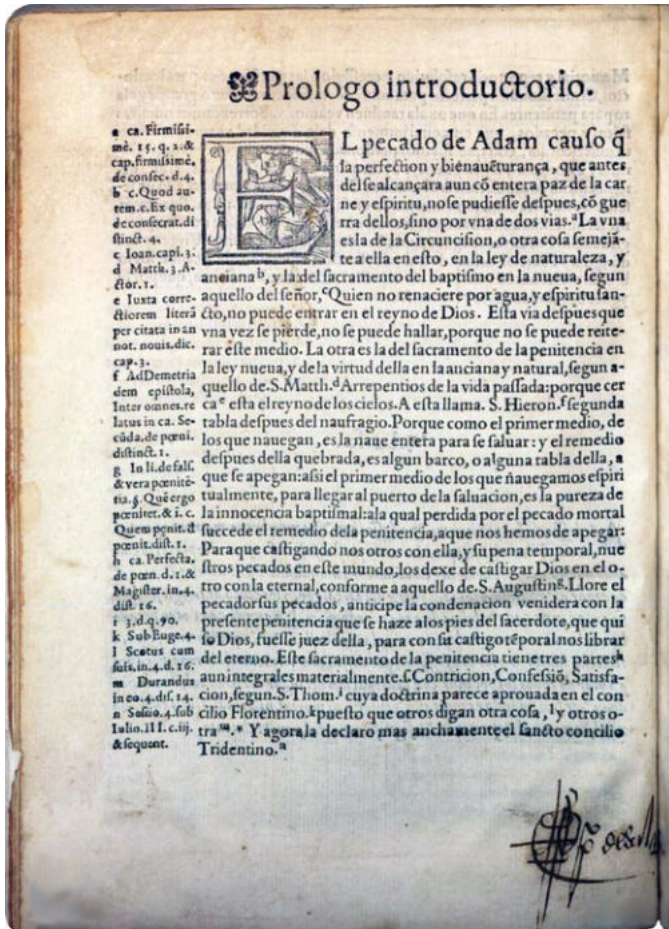 Prologo introductorio.
a ca. Firmissi-
mè. 15. q. 1. &
cap. firmissimè.
de consec. d. 4.
b c. Quod au-
tem. c. Ex quo.
de consecrat. di
stinct. 4.
c Ioan. capi. 3.
d Matth. 3. A-
ctor. 1.
e Iuxta corre-
ctiorem literã
per citata in an
not. nouis. dic.
cap. 3.
f Ad Demetria
dem epistola,
Inter omnes. re
latus in ca. Se-
cũda. de pœni.
distinct. 1.
g In li. de fals.
& vera pœnitẽ-
tia. §. Quẽ ergo
pœnitet. & i. c.
Quem penit. d
pœnit. dist. 1.
h ca. Perfecta.
de pœn. d. 1. &
Magister. in. 4.
dist. 16.
i 3. d. q. 90.
k Sub Euge. 4.
l Scotus cum
suis. in. 4. d. 16.
m Durandus
in eo. 4. dis. 14.
n Sessio. 4. sub
Iulio. III. c. iij.
& sequent.
EL pecado de Adam causo q̃
la perfection y bienauẽturança, que antes
del se alcançara aun cõ entera paz de la car
ne y espiritu, no se pudiesse despues, cõ gue
rra dellos, sino por vna de dos vias.ª La vna
es la de la Circuncision, o otra cosa semejã
te a ella en esto, en la ley de naturaleza, y
anciana ᵇ, y la del sacramento del baptismo en la nueua, segun
aquello del señor, ᶜ Quien no renaciere por agua, y espiritu san-
cto, no puede entrar en el reyno de Dios. Esta via despues que
vna vez se pierde, no se puede hallar, porque no se puede reite-
rar este medio. La otra es la del sacramento de la penitencia en
la ley nueua, y de la virtud della en la anciana y natural, segun a-
quello de. S. Matth. ᵈ Arrepentios de la vida passada: porque cer
ca ᵉ esta el reyno de los cielos. A esta llama. S. Hieron. ᶠ segunda
tabla despues del naufragio. Porque como el primer medio, de
los que nauegan, es la naue entera para se saluar: y el remedio
despues della quebrada, es algun barco, o alguna tabla della, a
que se apegan: assi el primer medio de los que nauegamos espiri
tualmente, para llegar al puerto de la saluacion, es la pureza de
la innocencia baptismal: ala qual perdida por el pecado mortal
succede el remedio dela penitencia, aque nos hemos de apegar:
Para que castigando nos otros con ella, y su pena temporal, nue
stros pecados en este mundo, los dexe de castigar Dios en el o-
tro con la eternal, conforme a aquello de. S. Augustin ᵍ. Llore el
pecador sus pecados, anticipe la condenacion venidera con la
presente penitencia que se haze a los pies del sacerdote, que qui
so Dios, fuesse juez della, para con su castigo tẽporal nos librar
del eterno. Este sacramento de la penitencia tiene tres partes ʰ
aun integrales materialmente. s. Contricion, Confessiõ, Satisfa-
cion, segun. S. Thom. ⁱ cuya doctrina parece aprouada en el con
cilio Florentino. ᵏ puesto que otros digan otra cosa, ˡ y otros o-
tra ᵐ. * Y agora la declaro mas anchamente el sancto concilio
Tridentino. ⁿ